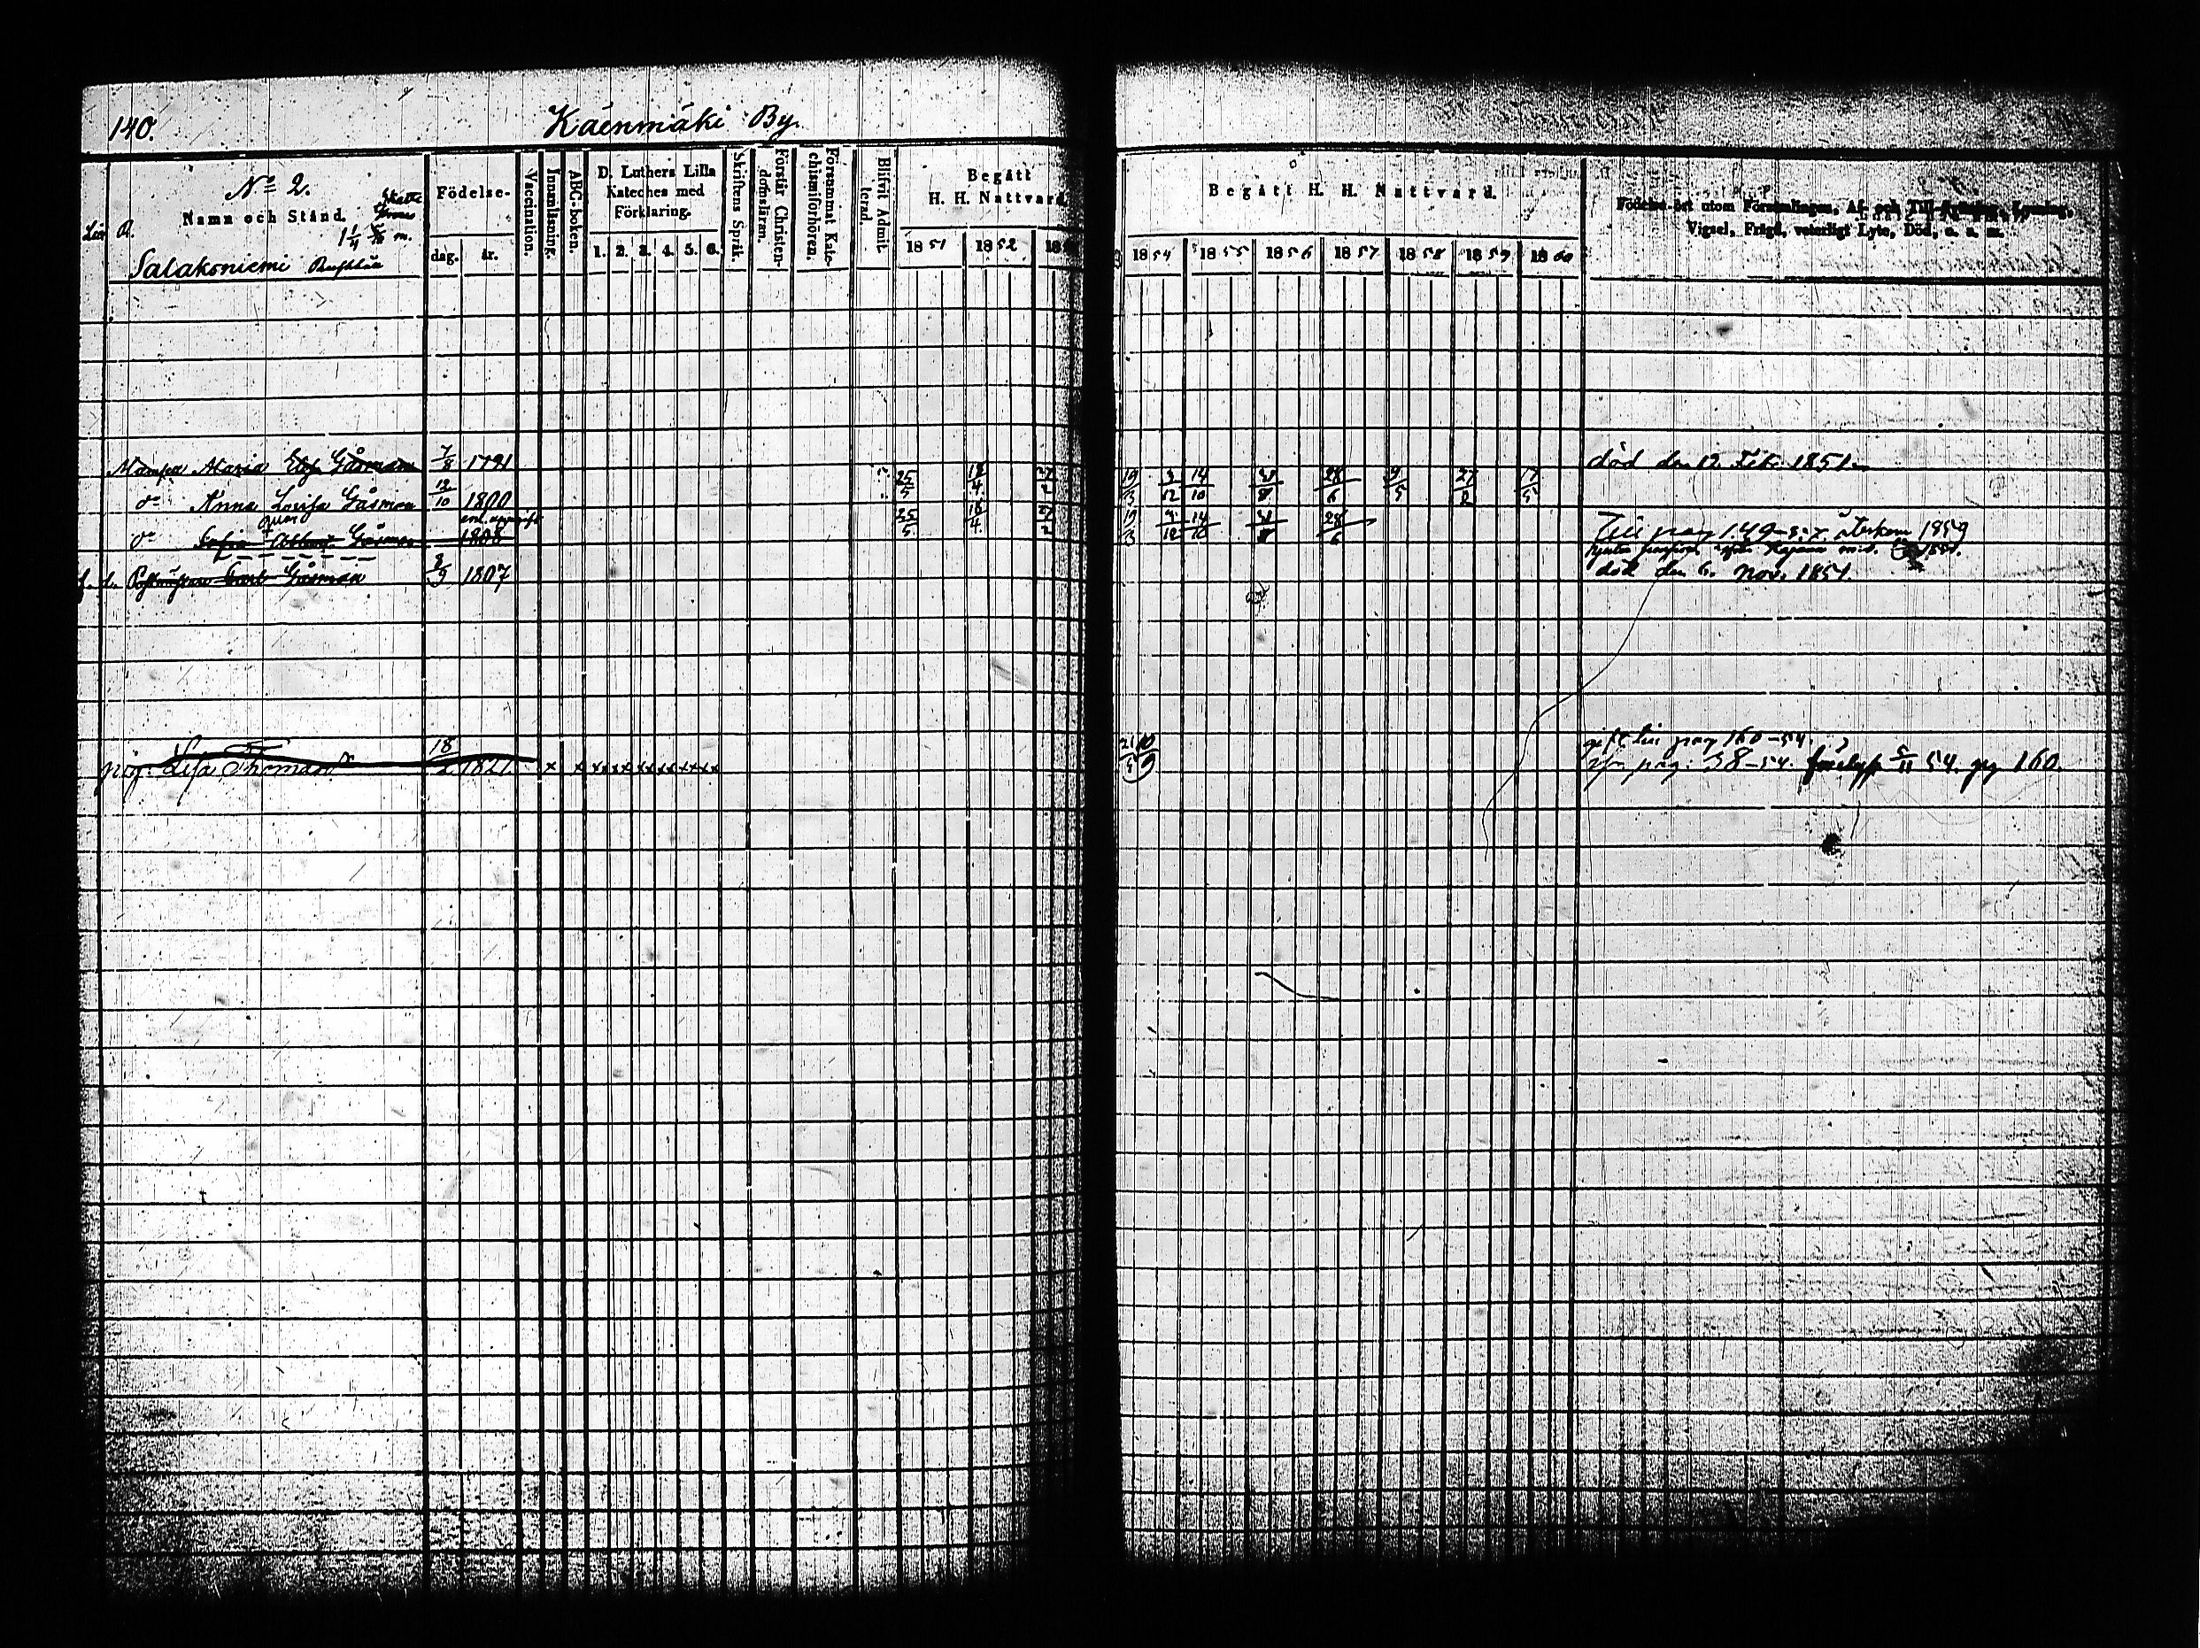 140.
Käenmäki By
No 2.
Namn och Stånd.
Skatte
1 1/4 m.
Salakoniemi
Födelse-
dag. år.
Vaccination.
Innanläsning.
ABC-boken.
D. Luthers Lilla
Kateches med
Förklaring.
1. 2. 3. 4. 5. 6.
Skriftens Språk.
Förstår Christen-
domsläran.
Försummat Kate-
chismiförhören.
Blifvit Admit-
terad.
Begått
H. H. Nattvard.
1851 1852 18
Begått H. H. Nattvard.
1854 1855 1856 1857 1858 1859 1860
Födelse-ort utom Församlingen, Af- och Till-flyttning, Lysning,
Vigsel, Frägd, veterligt Lyte, Död, o. s. m.
Mamsel Maria Elisa Gåsman 7/8 1791 död den 12. Feb. 1851.
do Anna Lovisa Gåsman 12/10 1800 25/5 18/4 27/2 19/3 3/12 14/10 28/6 9/5 27/2 17/5
do Sofia Gåsman 1808 25/5 18/4 27/2 19/3 3/12 14/10 28/6 Till pag 149 återkom 1859
Carl Gåsman 8/9 1807 död den 6. Nov. 1851.
gift till pag 160-54.
pig. Lisa Thomasdr 18/2 1821. x x x x x x x x x x x x x x pag: 38-54. 5/11 54. pag 160.